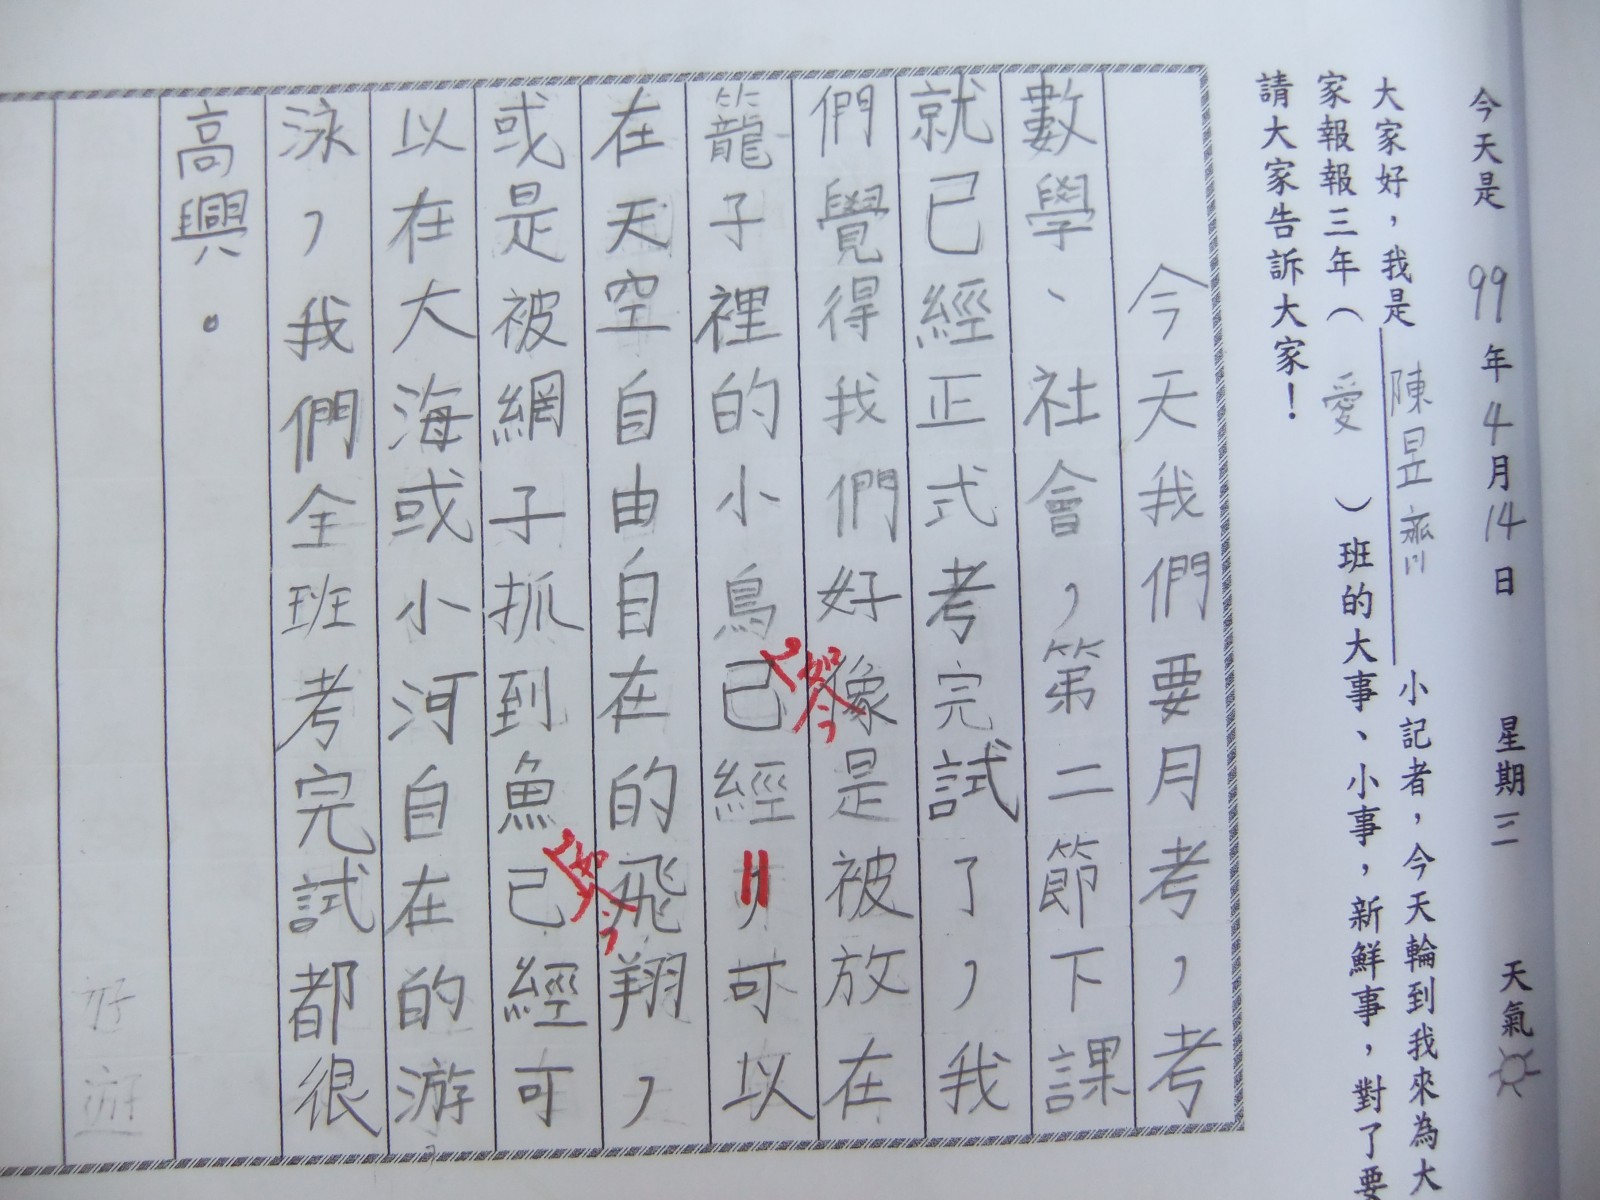 今天是 99 年 4 月 14 日 星期三 天氣
大家好，我是 陳昱齊 小記者，今天輪到我來為大
家報報三年（ 愛 ）班的大事、小事，新鮮事，對了要
請大家告訴大家！
今天我們要月考，考
數學、社會，第二節下課
就已經正式考完試了，我
們覺得我們好像是被放在
如今
籠子裡的小鳥已經，可以
在天空自由自在的飛翔，
如今
或是被網子抓到魚已經可
以在大海或小河自在的游
泳，我們全班考完試都很
高興。
好遊